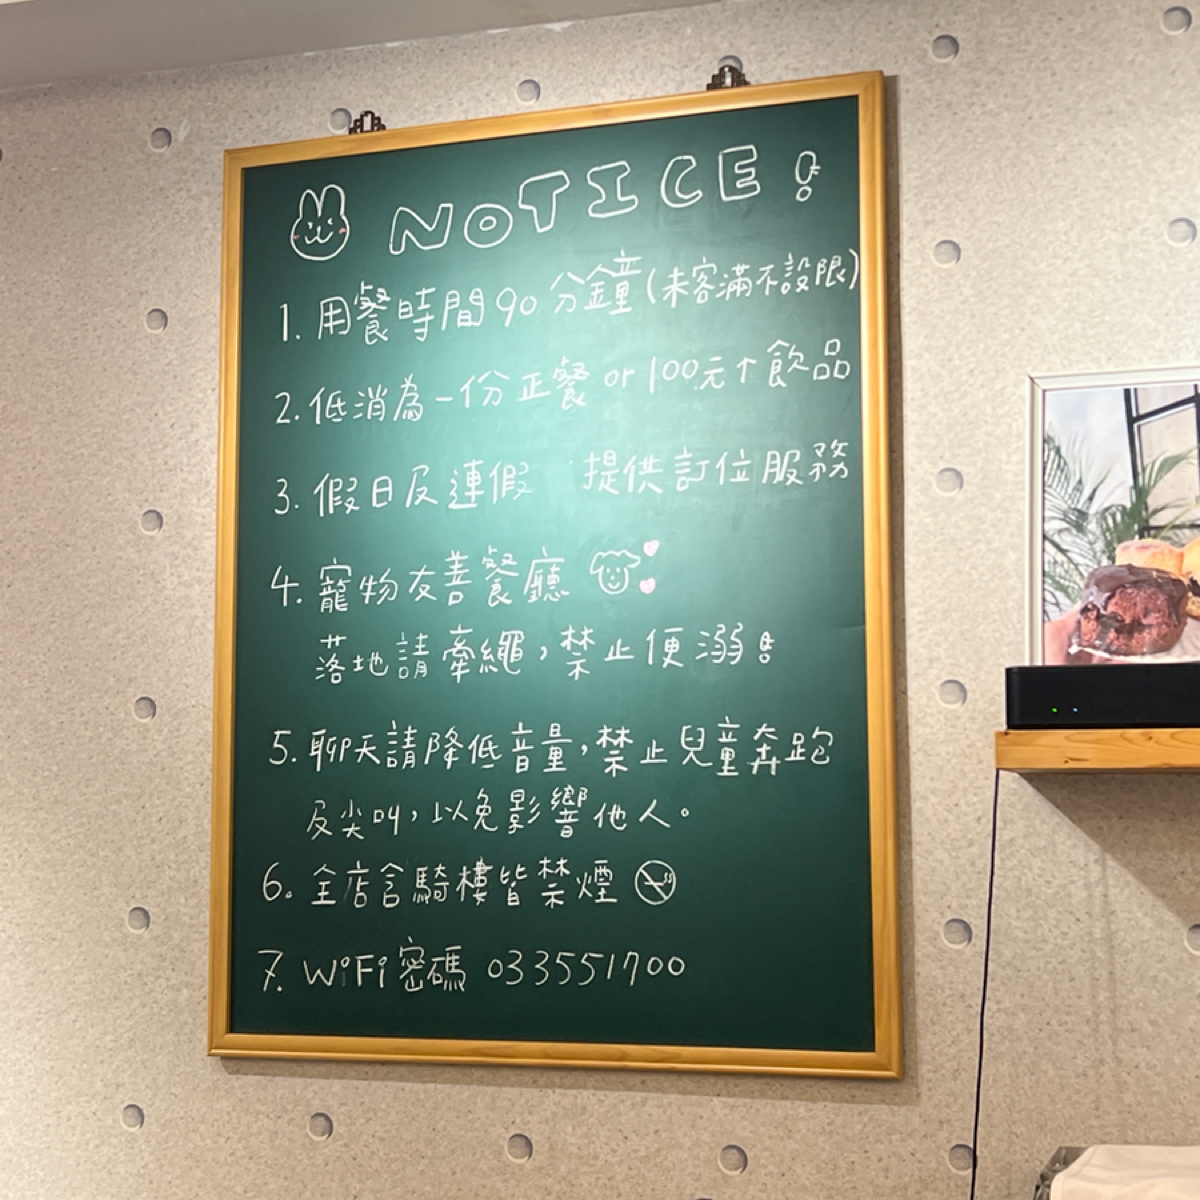 NOTICE!
1. 用餐時間90分鐘(未客滿不設限)
2. 低消為一份正餐 or 100元↑飲品
3. 假日及連假 提供訂位服務
4. 寵物友善餐廳
落地請牽繩，禁止便溺!
5. 聊天請降低音量，禁止兒童奔跑
及尖叫，以免影響他人。
6. 全店含騎樓皆禁煙
7. WiFi密碼 033551700